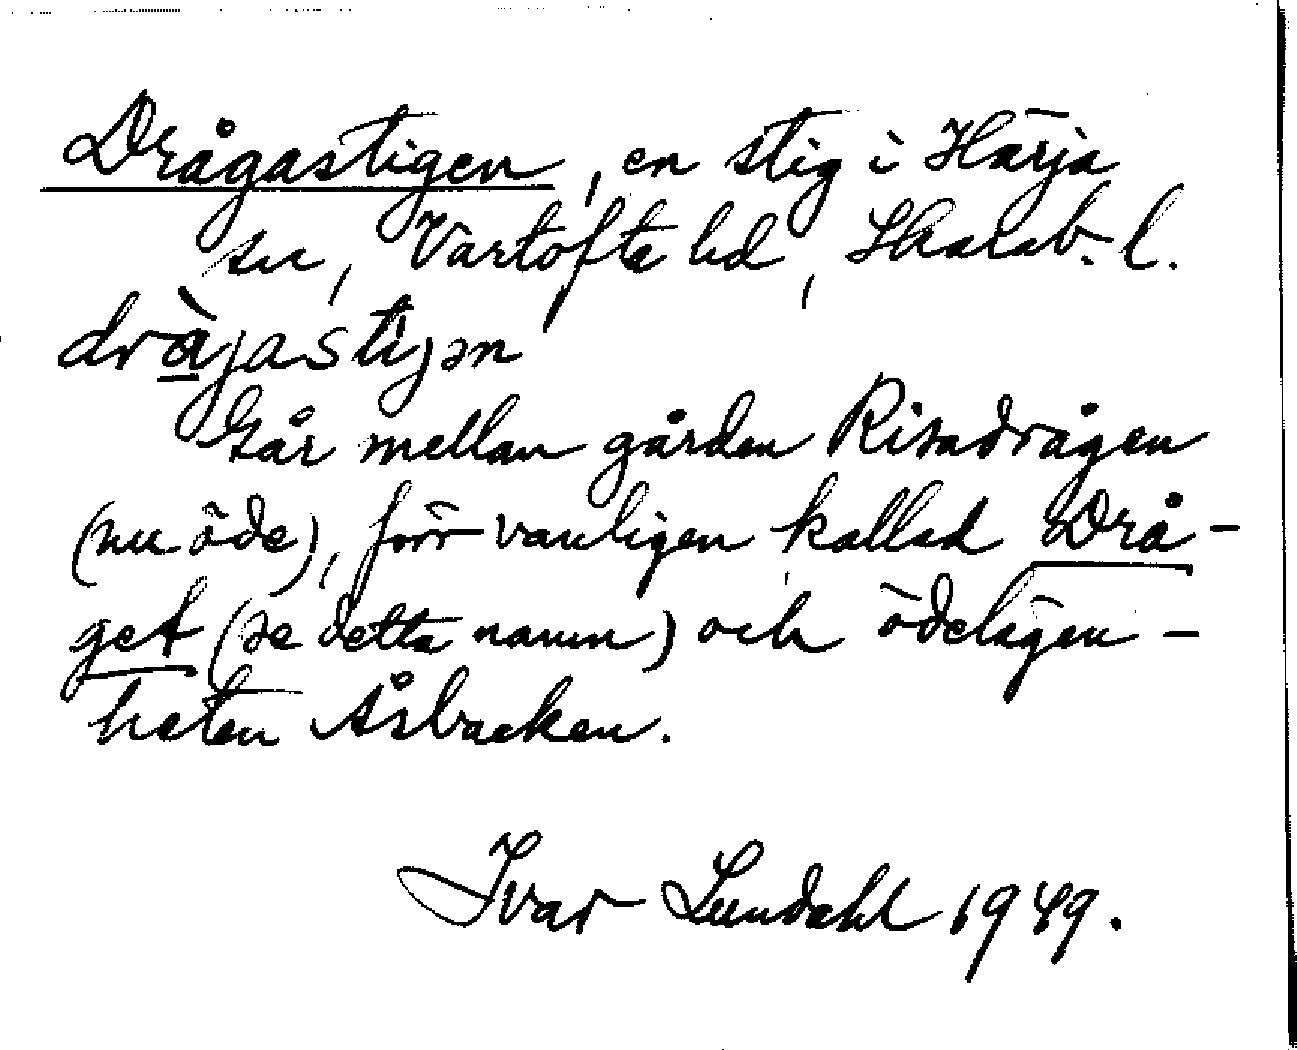 Drågastigen, en stig i Härja
sn, Vartofta hd, Skarab. l.
dràjastijən
Går mellan gården Risadrågen
(nu öde), förr vanligen kallad Drå-
get (se detta namn) och ödelägen-
heten Åsbacken.
Ivar Lundahl 1949.